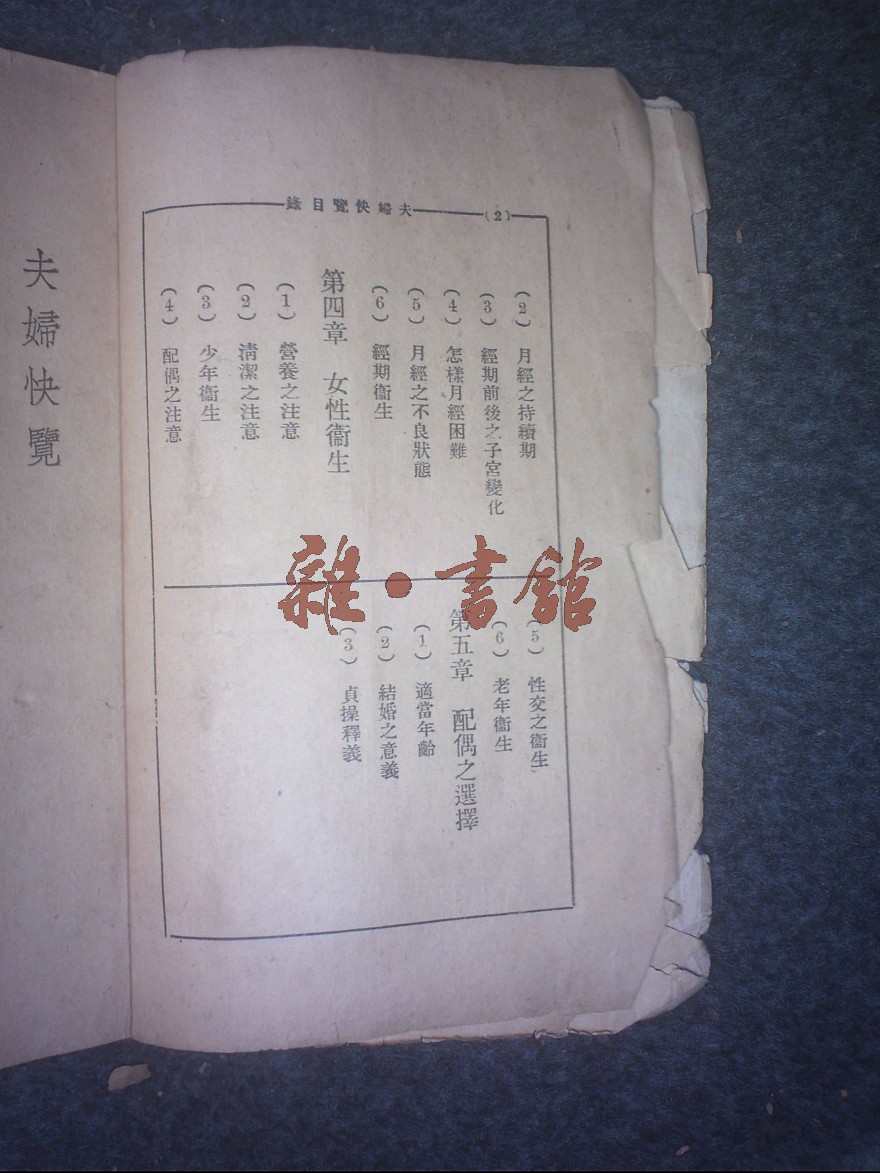 夫婦快覽目錄
(2)
(2) 月經之持續期
(3) 經期前後之子宮變化
(4) 怎樣月經困難
(5) 月經之不良狀態
(6) 經期衞生
第四章 女性衞生
(1) 營養之注意
(2) 淸潔之注意
(3) 少年衞生
(4) 配偶之注意
(5) 性交之衞生
(6) 老年衞生
第五章 配偶之選擇
(1) 適當年齡
(2) 結婚之意義
(3) 貞操釋義
夫婦快覽
雜·書館